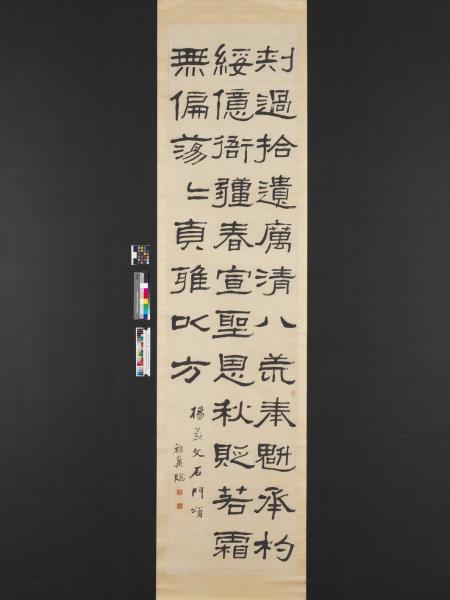 刺過拾遺厲清八荒奉魁承杓
綏億衙彊春宣聖恩秋貶若霜
無偏蕩〻貞雅以方
楊孟文石門頌